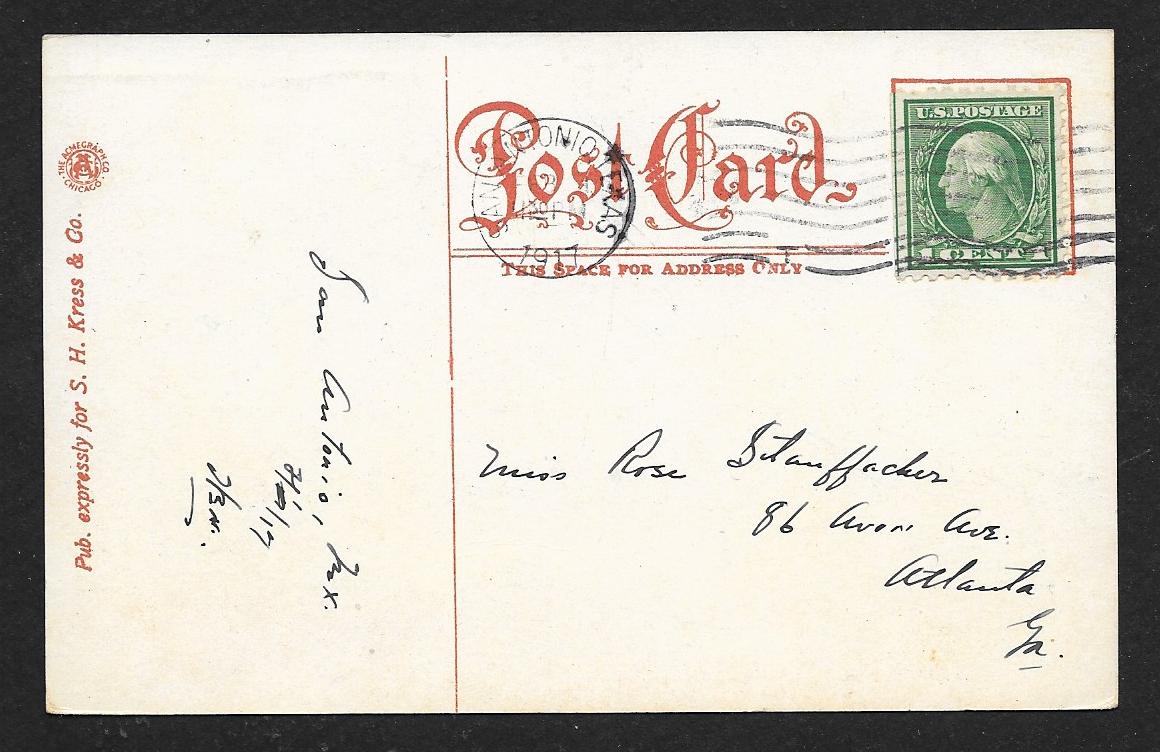 Pub. expressly for S. H. Kress & Co.
THE ACMEGRAPH CO.
CHICAGO
Post Card
THIS SPACE FOR ADDRESS ONLY
SAN ANTONIO TEXAS
1917
U.S. POSTAGE
1 CENT 1
San Antonio, Tex.
Miss Rose Stauffacher
86 Avon Ave.
Atlanta
Ga.